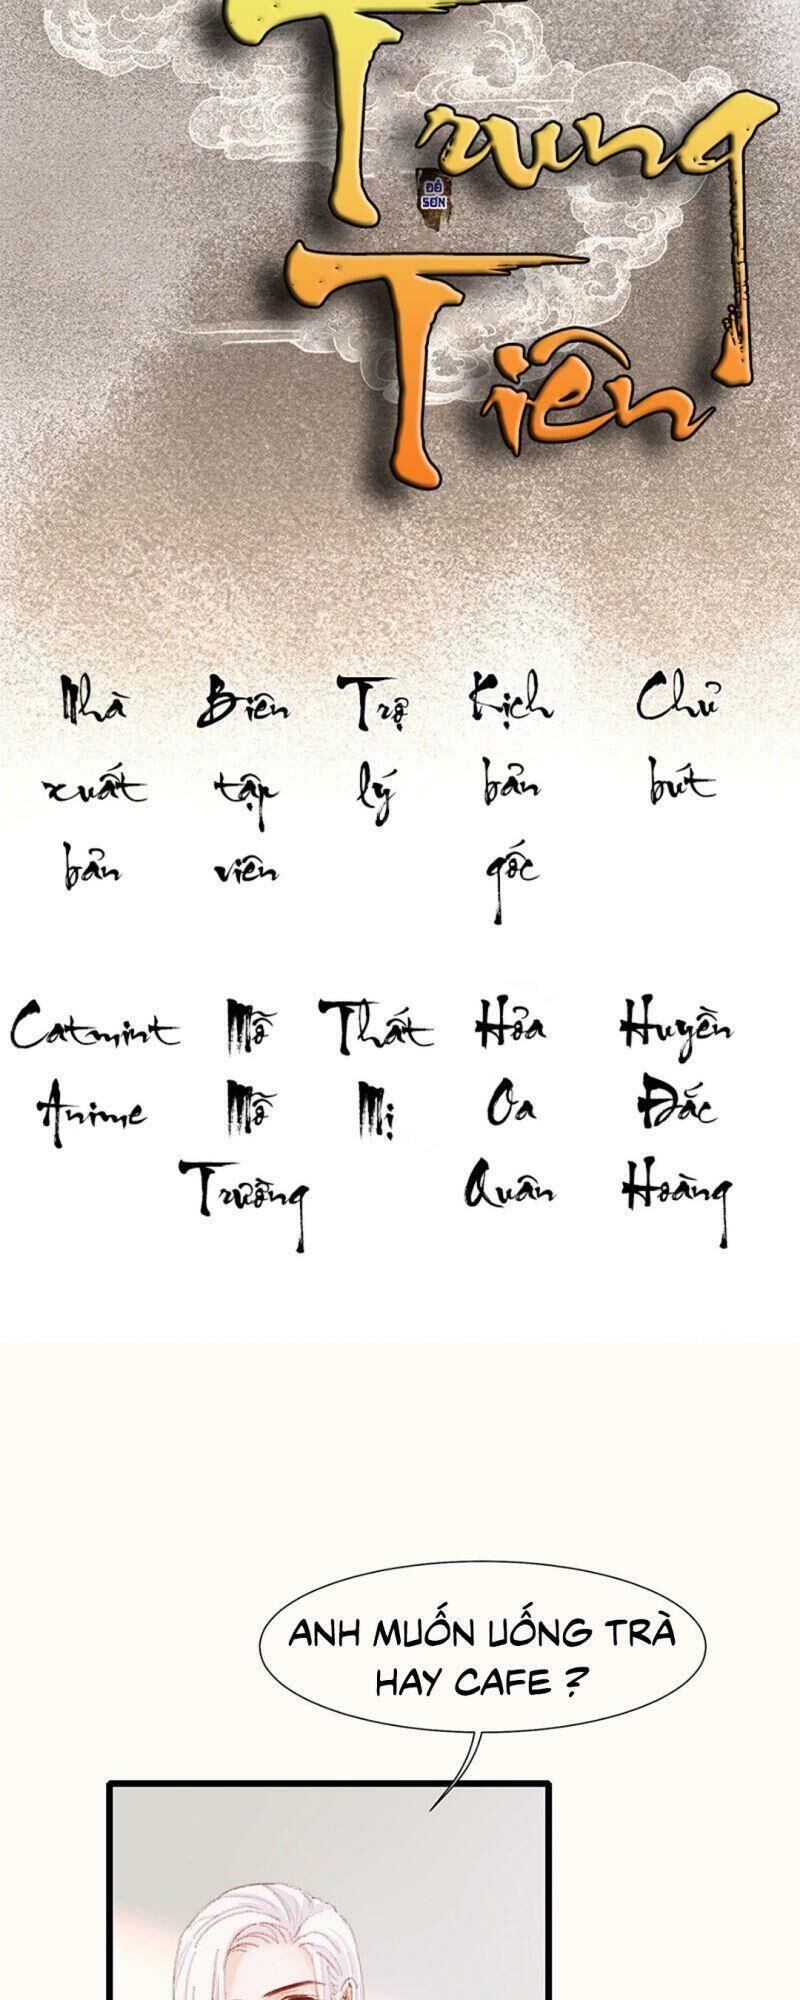 Trung
ĐẾ
SƠN
Tiên
Nhà xuất bản
Biên tập viên
Trợ lý
Kịch bản gốc
Chủ bút
Catmint Anime
Mỗ Mỗ Trường
Thất Mị
Hỏa Oa Quân
Huyền Đắc Hoàng
ANH MUỐN UỐNG TRÀ
HAY CAFE ?